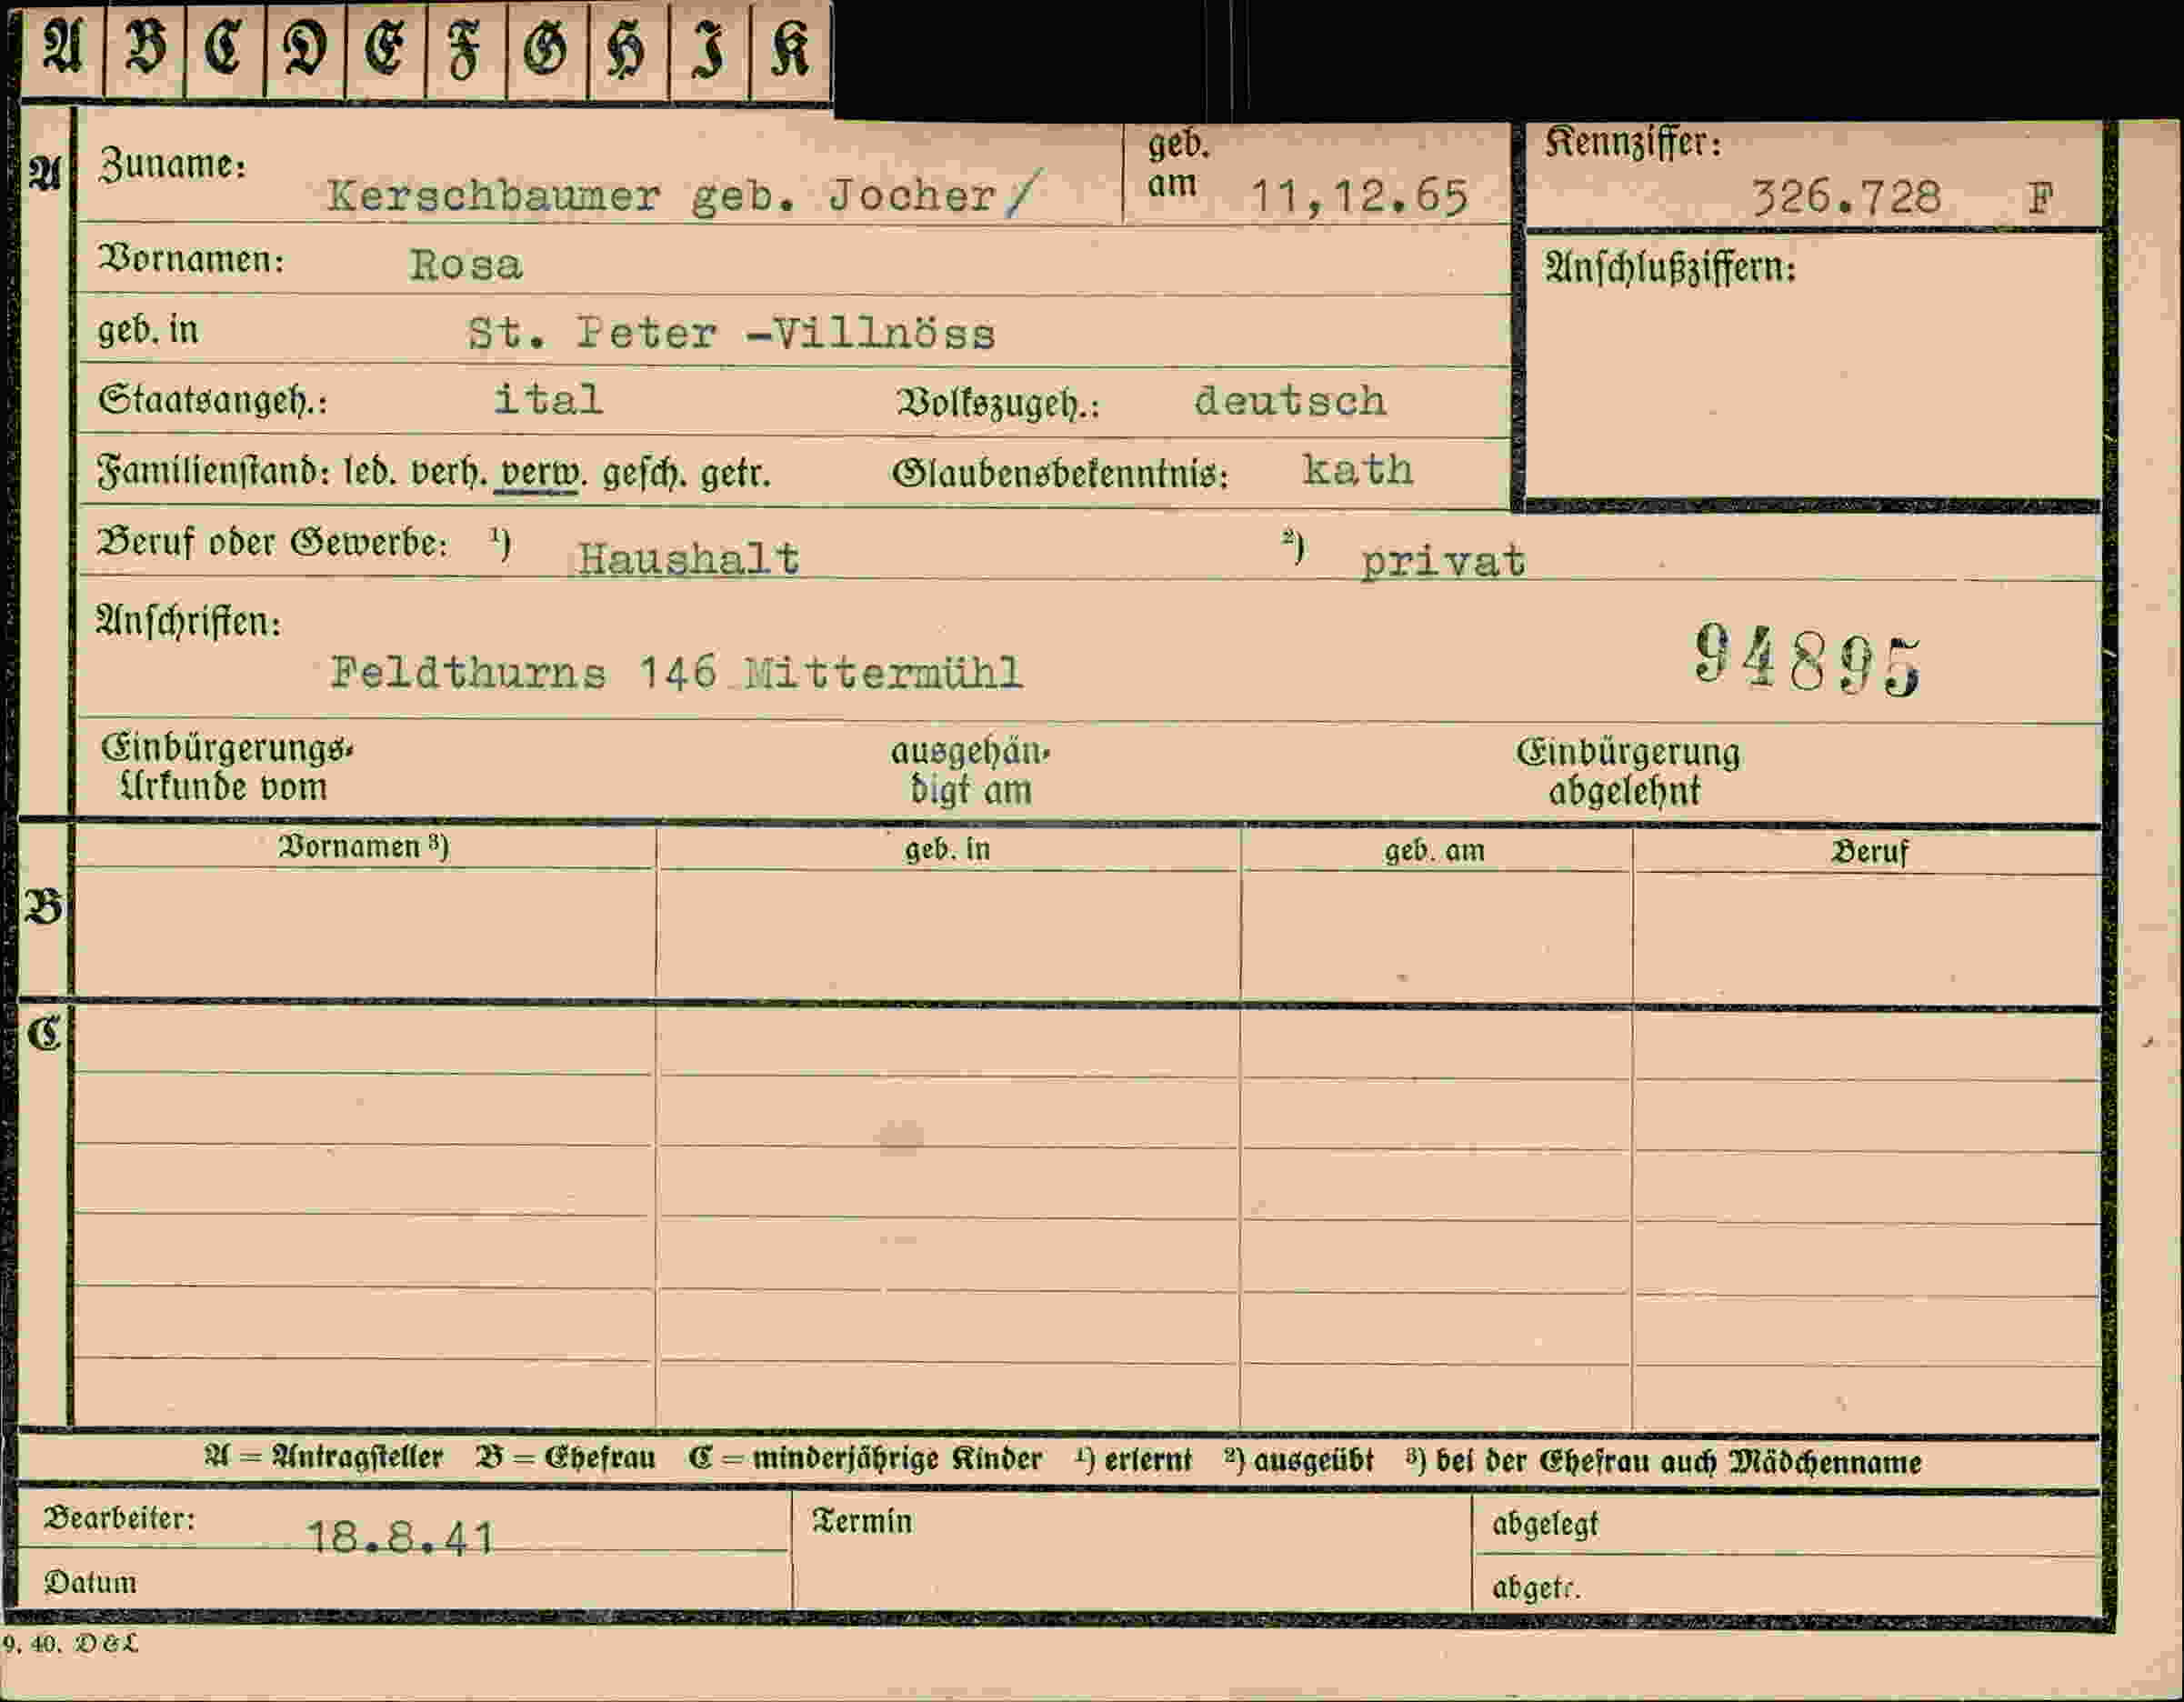 A B C D E F G H I K
A Zuname: Kerschbaumer geb. Jocher/ geb. am 11,12.65 Kennziffer: 326.728 F
Vornamen: Rosa Anschlußziffern:
geb. in St. Peter -Villnöss
Staatsangeh.: ital Volkszugeh.: deutsch
Familienstand: led. verh. verw. gesch. getr. Glaubensbekenntnis: kath
Beruf oder Gewerbe: ¹) Haushalt ²) privat
Anschriften:
Feldthurns 146 Mittermühl 94895
Einbürgerungs- ausgehän- Einbürgerung
Urkunde vom digt am abgelehnt
Vornamen ³) geb. in geb. am Beruf
B
C
A = Antragsteller B = Ehefrau C = minderjährige Kinder ¹) erlernt ²) ausgeübt ³) bei der Ehefrau auch Mädchenname
Bearbeiter: 18.8.41 Termin abgelegt
Datum abgetr.
9. 40. D & L